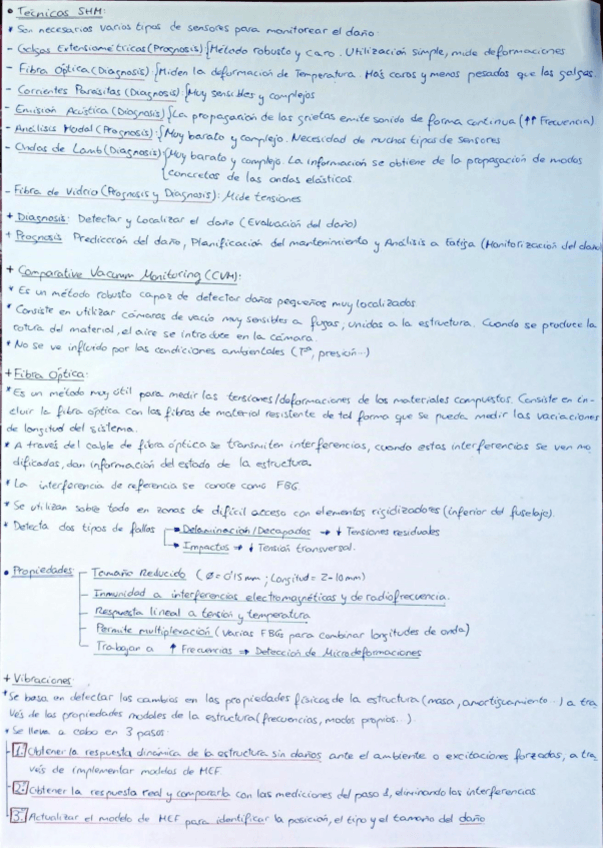 • Tecnicas SHM:
* Son necesarios varios tipos de sensores para monitorear el daño:
- Galgas Extensiométricas (Prognosis) {Método robusto y caro. Utilización simple, mide deformaciones
- Fibra Óptica (Diagnosis) {Miden la deformación de Temperatura. Más caros y menos pesados que las galgas.
- Corrientes Parasitas (Diagnosis) {Muy sensibles y complejos
- Emisión Acústica (Diagnosis) {La propagación de las grietas emite sonido de forma continua (↑↑ Frecuencia)
- Análisis Modal (Prognosis) {Muy barato y complejo. Necesidad de muchos tipos de sensores
- Ondas de Lamb (Diagnosis) {Muy barato y complejo. La información se obtiene de la propagación de modos
concretos de las ondas elásticas
- Fibra de Vidrio (Prognosis y Diagnosis): Mide tensiones
+ Diagnosis: Detectar y Localizar el daño (Evaluación del daño)
+ Prognosis: Predicción del daño, Planificación del mantenimiento y Análisis a fatiga (Monitorización del daño)
+ Comparative Vacumm Monitoring (CVM):
* Es un método robusto capaz de detectar daños pequeños muy localizados
* Consiste en utilizar cámaras de vacío muy sensibles a fugas, unidas a la estructura. Cuando se produce la
rotura del material, el aire se introduce en la cámara.
* No se ve influido por las condiciones ambientales (Tª, presión...)
+ Fibra Óptica:
* Es un método muy útil para medir las tensiones/deformaciones de los materiales compuestos. Consiste en in-
cluir la fibra óptica con las fibras de material resistente de tal forma que se pueda medir las variaciones
de longitud del sistema.
* A través del cable de fibra óptica se transmiten interferencias, cuando estas interferencias se ven mo
dificadas, dan información del estado de la estructura.
* La interferencia de referencia se conoce como FBG.
* Se utilizan sobre todo en zonas de difícil acceso con elementos rigidizadores (inferior del fuselaje).
* Detecta dos tipos de fallos → Delaminación/Decapados → ↓ Tensiones residuales
→ Impactos → ↓ Tensión transversal.
• Propiedades: - Tamaño Reducido (Ø = 0'15 mm ; Longitud = 2-10 mm)
- Inmunidad a interferencias electromagnéticas y de radiofrecuencia.
- Respuesta lineal a tensión y temperatura
- Permite multiplexación (varias FBGs para combinar longitudes de onda)
- Trabajar a ↑ Frecuencias ⇒ Detección de Microdeformaciones
+ Vibraciones:
* Se basa en detectar los cambios en las propiedades físicas de la estructura (masa, amortiguamiento...) a tra
vés de las propiedades modales de la estructura (frecuencias, modos propios...)
* Se lleva a cabo en 3 pasos:
1. Obtener la respuesta dinámica de la estructura sin daños ante el ambiente o excitaciones forzadas, a tra
vés de implementar modelos de MEF
2. Obtener la respuesta real y compararla con las mediciones del paso 1, eliminando las interferencias
3. Actualizar el modelo de MEF para identificar la posición, el tipo y el tamaño del daño